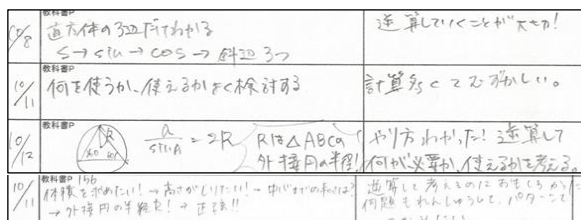 10/8
教科書P
直方体の3辺だけわかる
S→sin→cos→斜辺3つ
逆算していくことが大切!
10/11
教科書P
何を使うか、使えるかよく検討する
計算多くてむずかしい。
10/12
教科書P
R
a/sinA = 2R
Rは△ABCの
外接円の半径!
やり方わかった!逆算して
何が必要か、使えるかを考える。
10/11
教科書P 156
体積を求めたい!→高さがしりたい!→
→外接円の半径だ!→正弦!!
逆算して考えるのはおもしろかった